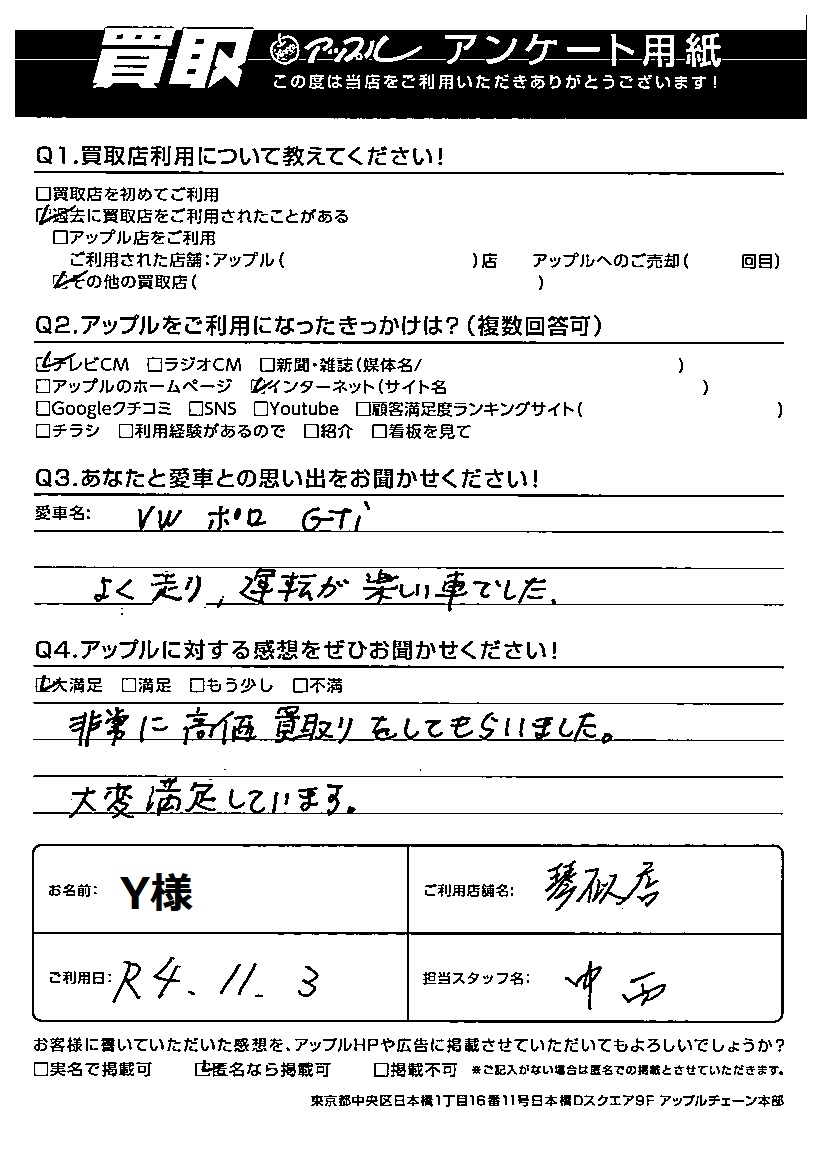 買取 アップル アンケート用紙
この度は当店をご利用いただきありがとうございます!
Q1.買取店利用について教えてください!
□買取店を初めてご利用
☑過去に買取店をご利用されたことがある
□アップル店をご利用
ご利用された店舗:アップル( )店 アップルへのご売却( 回目)
☑その他の買取店( )
Q2.アップルをご利用になったきっかけは?(複数回答可)
☑テレビCM □ラジオCM □新聞・雑誌(媒体名/ )
□アップルのホームページ ☑インターネット(サイト名 )
□Googleクチコミ □SNS □Youtube □顧客満足度ランキングサイト( )
□チラシ □利用経験があるので □紹介 □看板を見て
Q3.あなたと愛車との思い出をお聞かせください!
愛車名: VW ポロ GTi
よく走り、運転が楽しい車でした。
Q4.アップルに対する感想をぜひお聞かせください!
☑大満足 □満足 □もう少し □不満
非常に高価買取りをしてもらいました。
大変満足しています。
お名前: Y様 ご利用店舗名: 琴似店
ご利用日: R4.11.3 担当スタッフ名: 中西
お客様に書いていただいた感想を、アップルHPや広告に掲載させていただいてもよろしいでしょうか?
□実名で掲載可 ☑匿名なら掲載可 □掲載不可 ※ご記入がない場合は匿名での掲載とさせていただきます。
東京都中央区日本橋1丁目16番11号日本橋Dスクエア9F アップルチェーン本部